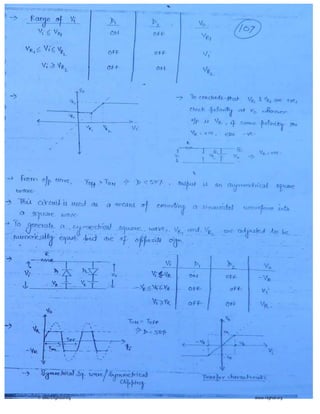 → Range of Vi D1 D2 V0
107
Vi ≤ VR1 ON OFF VR1
VR1 ≤ Vi ≤ VR2 OFF OFF Vi
Vi ≥ VR2 OFF ON VR2
→ To conclude that VR1 & VR2 are +ve,
check polarity at V0 whenever
o/p is VR, if same polarity on
VR +ve, else -ve.
→ From o/p wave, TOFF > TON ⇒ D < 50%, output is an asymmetrical square
wave.
→ This circuit is used as a means of converting a sinusoidal waveform into
a square wave
→ To generate a symmetrical square wave, VR1 and VR2 are adjusted to be
numerically equal but are of opposite sign.
→ R
Vi D1 D2 V0
Vi ≤ -VR ON OFF -VR
-VR ≤ Vi ≤ VR OFF OFF Vi
Vi ≥ VR OFF ON VR
→ V0
TON = TOFF
⇒ D = 50%
VR
-VR
TON TOFF
→ Symmetrical Sq. wave / Symmetrical
Clipping
Transfer characteristics